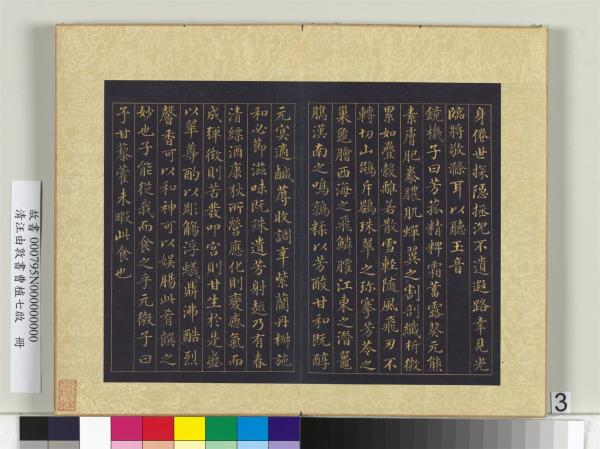 身倦世探隱拯沈不遺遐路幸見光
臨將敬滌耳以聽玉音
鏡機子曰芳菰精粺霜蓄露葵元熊
素膚肥豢膿肌蟬翼之割剖纖析微
累如疊縠離若散雪輕隨風飛刃不
轉切山鵽斥鷃珠翠之珍搴芳苓之
巢龜膾西海之飛鱗臛江東之潛鼉
臇漢南之鳴鶉糅以芳酸甘和既醇
元冥適鹹蓐收調辛紫蘭丹椒施
和必節滋味既殊遺芳射越乃有春
清縹酒康狄所營應化則變感氣而
成彈徵則苦發叩宮則甘生於是盛
以翠尊酌以彫觴浮蟻鼎沸酷烈
馨香可以和神可以娛腸此肴饌之
妙也子能從我而食之乎元微子曰
予甘藜藿未暇此食也
故書 000795N000000000
清汪由敦書曹植七啟 冊
3